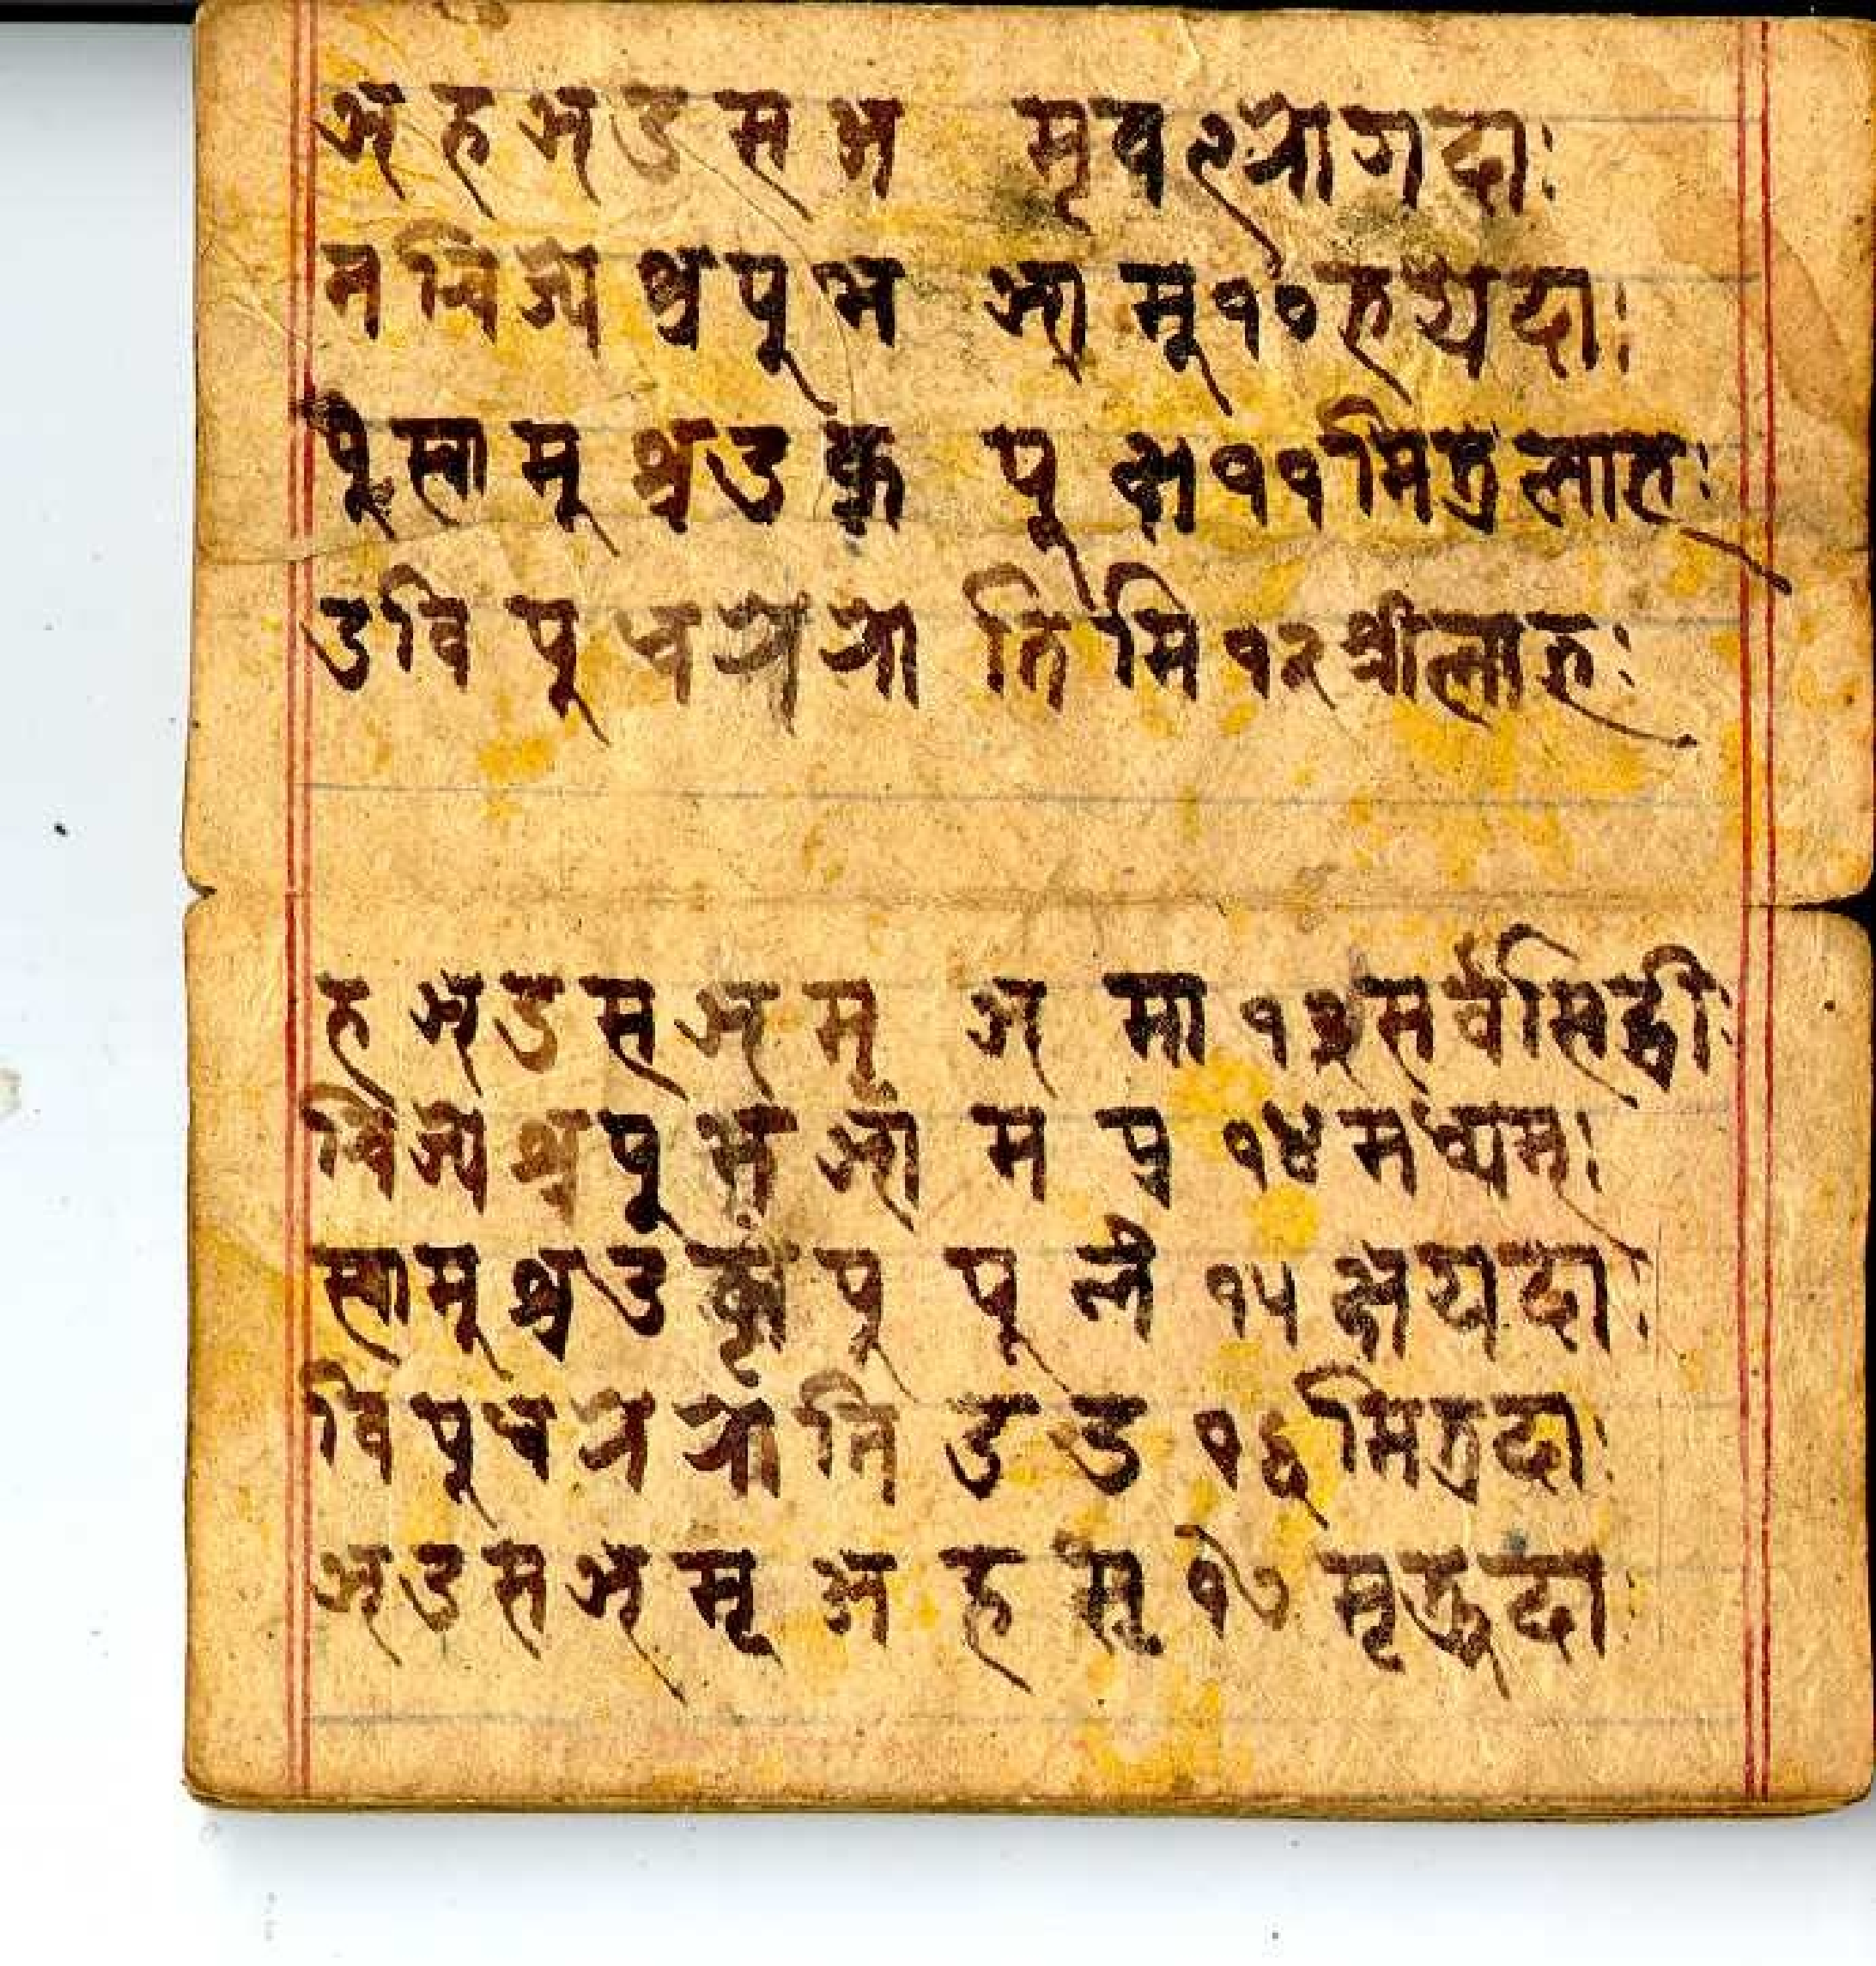 अ ह अ उ स अ मृ व ९ ञागदाः
न चि ज्ये श्र पू भ आ मू १० हयदाः
पू स्वा मू श्र उ कृ पू क्ष ११ मित्रलाहः
उ वि पू ध ञ ञा ति मि १२ श्रीलाहः
ह अ उ स अ मृ अ मा १३ सर्वसिद्धीः
चि ज्ये श्र पू भ आ म प्र १४ मध्यमः
स्वा मू श्र उ कृ पू पू ल १५ क्षयदाः
वि पू ध ञ ञा ति उ ड १६ मित्रदाः
अ उ स अ मृ अ ह सृ १७ मृदाः